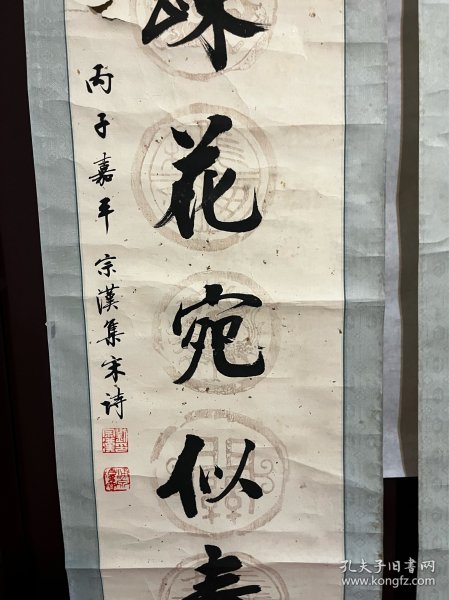 花宛似
丙子嘉平宗漢集宋诗
孔夫子旧书网
www.kongfz.com